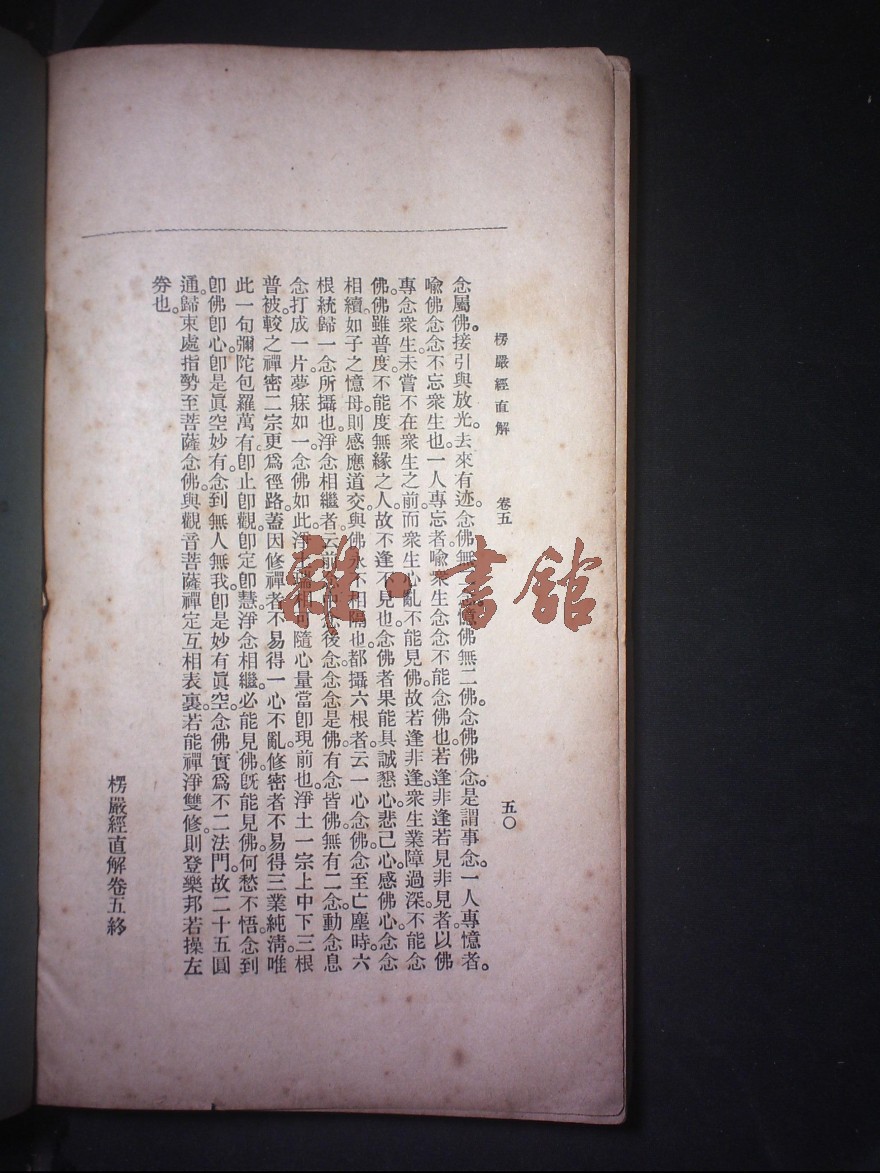 楞嚴經直解 卷五 五〇
念屬佛。接引與放光。去來有迹。念佛無念。憶佛無二佛。念佛佛念。是謂事念。一人專憶者。
喩佛念念不忘衆生也。一人專忘者。喩衆生念念不能念佛也。若逢非逢。若見非見者。以佛
專念衆生。未嘗不在衆生之前。而衆生心亂。不能見佛。故若逢非逢。衆生業障過深。不能念
佛。佛雖普度。不能度無緣之人。故不逢不見也。念佛者果能具誠懇心。悲己心。感佛心。念念
相續。如子之憶母。則感應道交。與佛永不相隔也。都攝六根者。云一心念佛。念至亡塵時。六
根統歸一念所攝也。淨念相繼者。云前念後念。念念是佛。有念皆佛。無有二念。動念息
念。打成一片。夢寐如一。念佛如此。淨土可隨心量當卽現前也。淨土一宗。上中下三根
普被。較之禪密二宗。更爲徑路。蓋因修禪者不易得一心不亂。修密者不易得三業純淸。唯
此一句彌陀。包羅萬有。卽止卽觀。卽定卽慧。淨念相繼。必能見佛。旣能見佛。何愁不悟。念到
卽佛卽心。卽是眞空妙有。念到無人無我。卽是妙有眞空。念佛實爲不二法門。故二十五圓
通。歸束處指勢至菩薩念佛。與觀音菩薩禪定。互相表裏。若能禪淨雙修。則登樂邦若操左
劵也。
楞嚴經直解卷五終
雜·書館